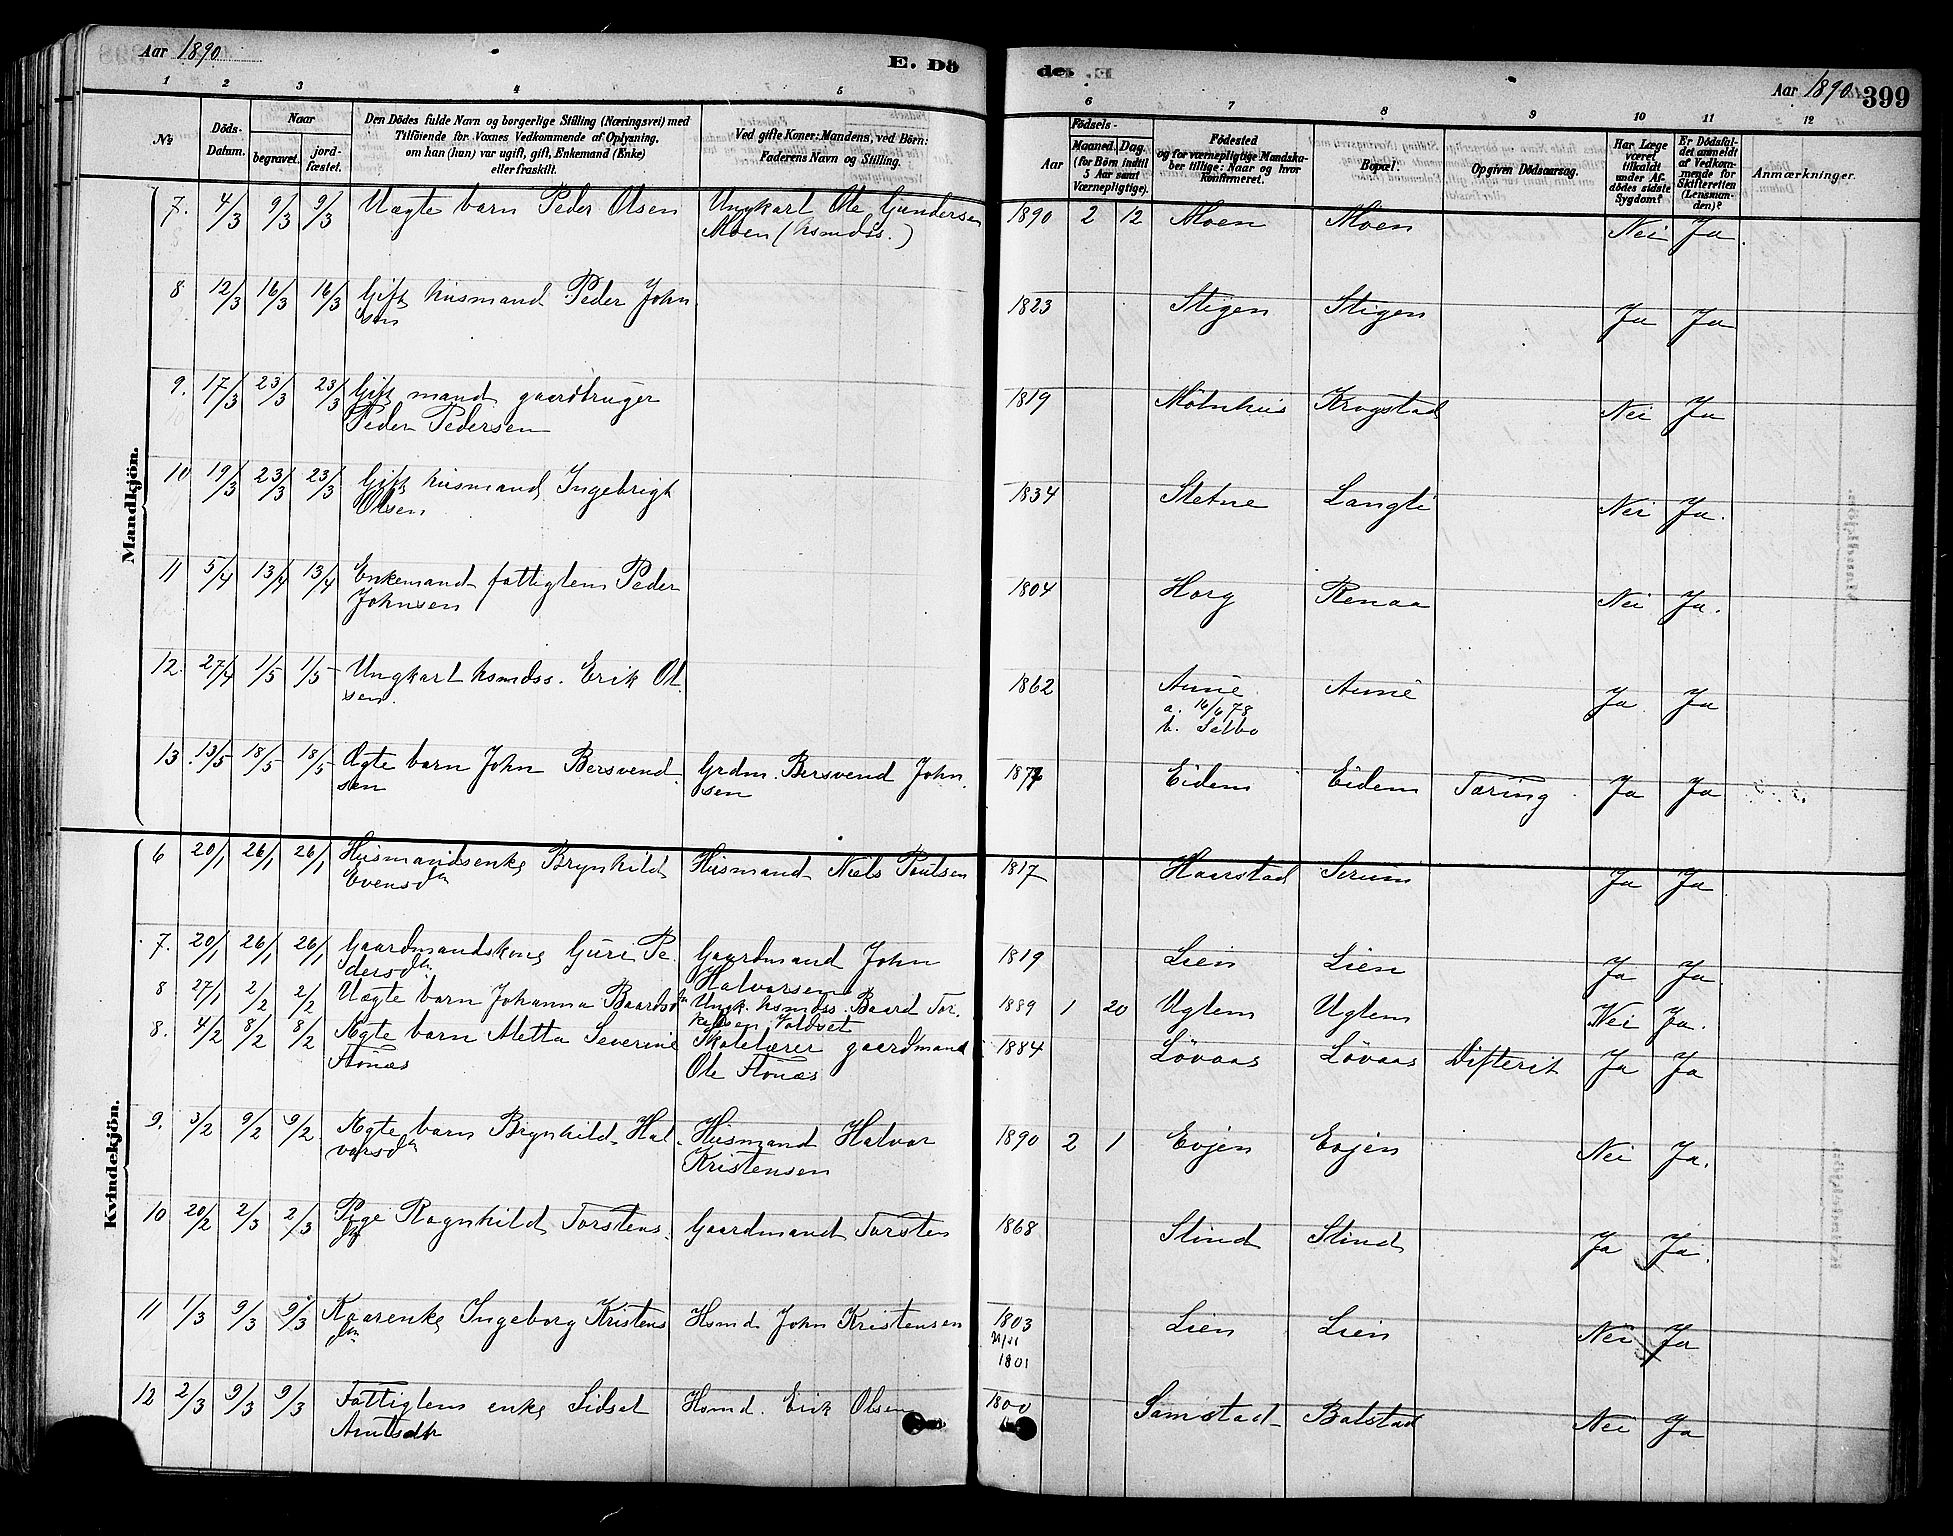 Aar 1890 E. Dö
den. Aar 1890. 399
1 2 3 4 5 6 7 8 9 10 11 12
No. Döds-Datum. Naar begravet. jordfæstet. Den Dödes fulde Navn og borgerlige Stilling (Næringsvei) med Tilföiende for Voxnes Vedkommende af Oplysning, om han (hun) var ugift, gift, Enkemand (Enke) eller fraskilt. Ved gifte Koner: Mandens, ved Börn: Faderens Navn og Stilling.
Födsels- Aar Maaned. Dag. (for Börn indtil 5 Aar samt Værnepligtige). Födested og for værnepligtige Mandskaber tillige: Naar og hvor Konfirmeret. Bopæl. Opgiven Dödsaarsag. Har Læge været tilkaldt under Afdödes sidste Sygdom? Er Dödsfaldet anmeldt af Vedkommende for Skifteretten (Lensmanden)? Anmærkninger.
Mandkjön.
7. 4/3 9/3 9/3 Uægte barn Peder Olsen Ungkarl Ole Gundersen 1890 2 12 Moen Moen Nei Ja.
Moen (husmdss.)
8 12/3 16/3 16/3 Gift husmand Peder John 1823 Stigen Stigen Ja Ja
sen
9. 17/3 23/3 23/3 Gift mand gaardbruger 1819 Mölnhus Krogstad Nei Ja
Peder Pedersen
10 19/3 23/3 23/3 Gift husmand Ingebrigt 1834 Sletne Langli Nei Ja.
Olsen
11 5/4 13/4 13/4 Enkemand fattiglem Peder 1804 Horg Renaa Nei Ja.
Johnsen
12. 27/4 1/5 1/5 Ungkarl husmdss. Erik Ol 1862 Aune Aune Ja Ja
sen. a. 16/6 78
b. Selbo
13. 13/5 18/5 18/5 Ægte barn John Bersvend Grdm. Bersvend John 187 Eidem Eidem Tæring Ja Ja
sen sen
Kvindekjön.
6 20/1 26/1 26/1 Husmandsenke Brynhild Husmand Niels Paulsen 1817 Haarstad Serum Ja Ja
Evensdtr
7. 20/1 26/1 26/1 Gaardmandskone Guri Pe Gaardmand John 1819 Lien Lien Ja Ja.
dersdtr Halvorsen
8 27/1 2/2 2/2 Uægte barn Johanna Baardsdtr Ungk. husmdss. Baard Tor 1889 1 20 Uglem Uglem Nei Ja.
kelsen Voldset
8. 4/2 8/2 8/2 Ægte barn Metta Severine Skolelærer gaardmand 1884 Lövaas Lövaas Difterit Ja Ja
Flönæs Ole Flönæs
9. 3/2 9/2 9/2 Ægte barn Brynhild Hal Husmand Halvor 1890 2 1 Evjen Evjen Nei Ja.
vorsdtr Kristensen
10 20/2 2/3 2/3 Pige Ragnhild Torstens Gaardmand Torsten 1868 Slind Slind Ja Ja.
dtr
11 1/3 9/3 9/3 Kaarenke Ingeborg Kristens Husmd John Kristensen 1803 Lien Lien Nei Ja
dtr
1801
12 2/3 9/3 9/3 Fattiglem enke Sidsel Husmd. Erik Olsen 1800 Samstad Balstad Nei Ja
Arntsdtr